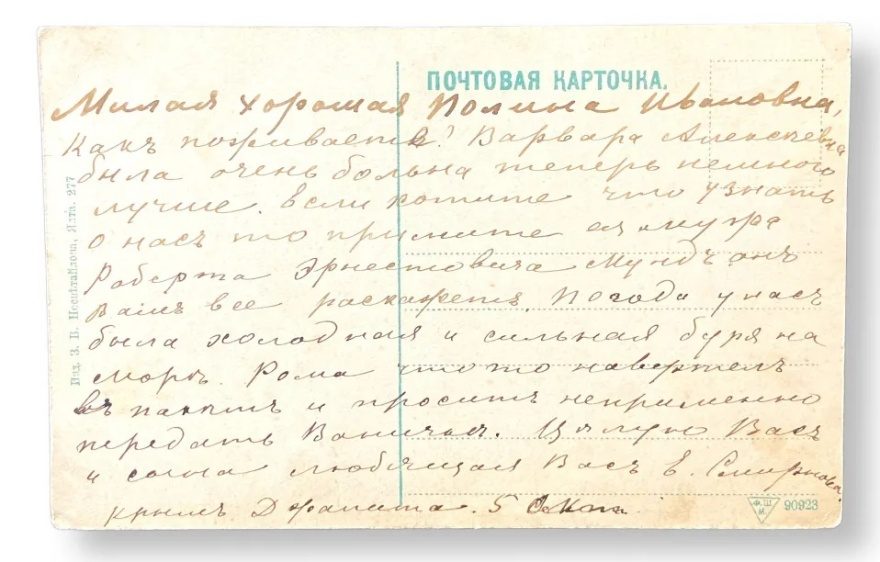 ПОЧТОВАЯ КАРТОЧКА.
Милая хорошая Полина Ивановна,
Какъ поживаете? Варвара Алексѣевна
была очень больна теперь немного
лучше. Если хотите что узнать
о насъ то примите ея мужа
Роберта Эрнестовича онъ
Вамъ все раскажетъ. Погода у насъ
была холодная и сильная буря на
морѣ. Рома что то навертелъ
въ пакетъ и проситъ неприменно
передать Ваничкѣ. Цѣлую Васъ
и любящая Васъ Е. Смирнова.
Крымъ Джалита. 5 Окт.
Изд. З. В. Ялта. 277
Ф. Ш
М.
90923